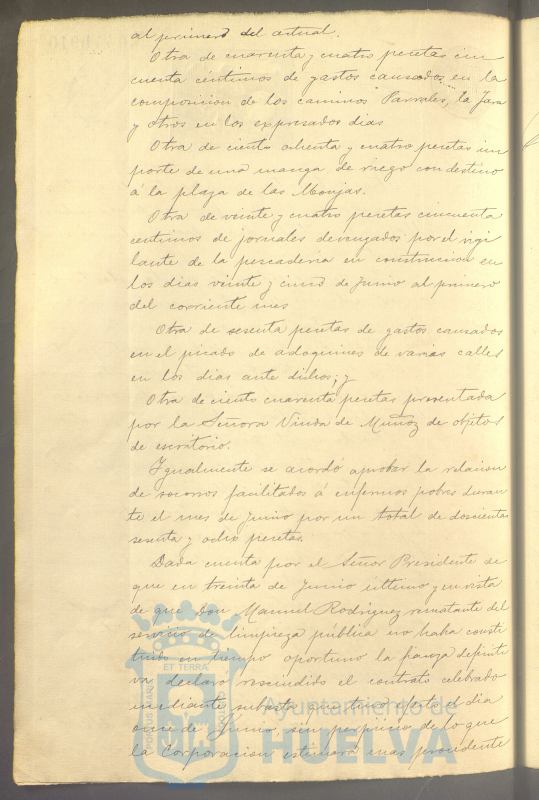 al primero del actual.
Otra de cuarenta y cuatro pesetas cin
cuenta centimos de gastos causados en la
composicion de los caminos "Parrales", la Jara
y otros en los expresados dias
Otra de ciento ochenta y cuatro pesetas im
porte de una manga de riego con destino
á la plaza de las Monjas.
Otra de veinte y cuatro pesetas cincuenta
centimos de jornales devengados por el vigi
lante de la pescaderia en construccion en
los dias veinte y cinco de Junio al primero
del corriente mes
Otra de sesenta pesetas de gastos causados
en el picado de adoquines de varias calles
en los dias ante dichos; y
Otra de ciento cuarenta pesetas presentada
por la Señora Viuda de Muñoz de objetos
de escritorio.
Igualmente se acordó aprobar la relacion
de socorros facilitados á enfermos pobres duran
te el mes de Junio por un total de doscientas
sesenta y ocho pesetas.
Dada cuenta por el Señor Presidente de
que en treinta de Junio ultimo y en vista
de que Don Manuel Rodriguez rematante del
servicio de limpieza publica no habia consti
tuido en tiempo oportuno la fianza definiti
va declaró rescindido el contrato celebrado
mediante subasta que tuvo efecto el dia
once de Junio, sin perjuicio de lo que
la Corporacion estimara mas procedente
ET TERRÆ
Ayuntamiento de
HUELVA